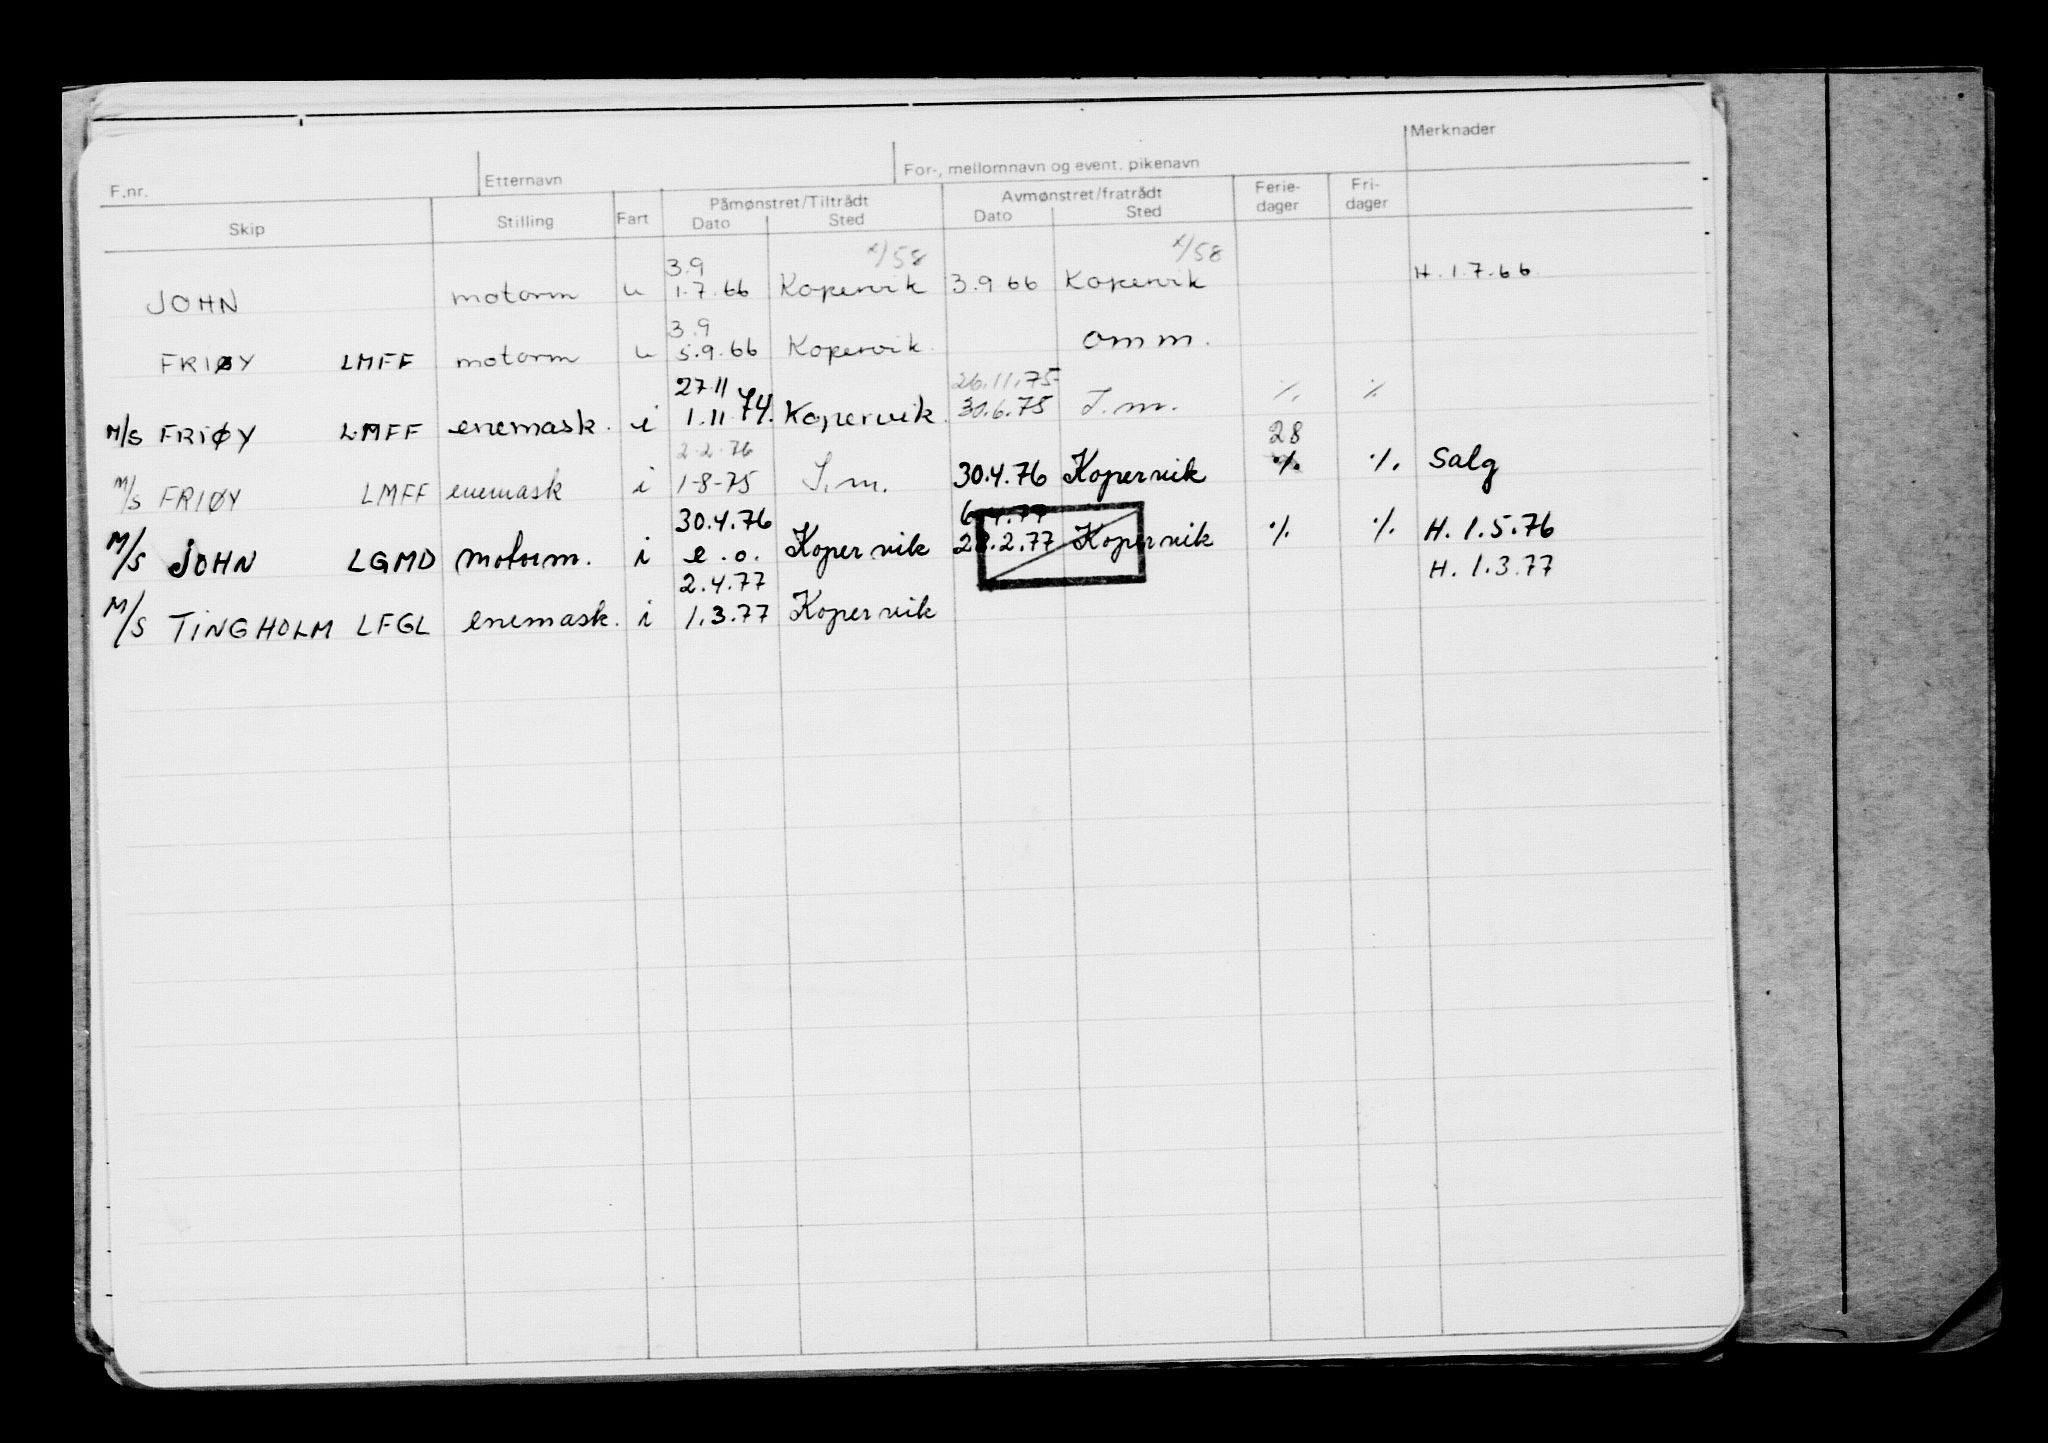 Merknader
F.nr. Etternavn For-, mellomnavn og event. pikenavn
Skip Stilling Fart Påmønstret/Tiltrådt Dato Sted Avmønstret/fratrådt Dato Sted Ferie-dager Fri-dager
3.9 x/58 x/58
JOHN motorm u 1.7.66 Kopervik 3.9 66 Kopervik H. 1.7.66
3.9
FRIØY LMFF motorm u 5.9.66 Kopervik omm.
27.11 26.11.75
M/S FRIØY LMFF enemask. i 1.11.74. Kopervik 30.6.75 S.m. % %
2.2.76 28
M/S FRIØY LMFF enemask i 1-8-75 S.m. 30.4.76 Kopervik % % Salg
30.4.76 6.4.77
M/S JOHN LGMD motorm. i e.o. Kopervik 28.2.77 Kopervik % % H. 1.5.76
2.4.77 H. 1.3.77
M/S TINGHOLM LFGL enemask. i 1.3.77 Kopervik